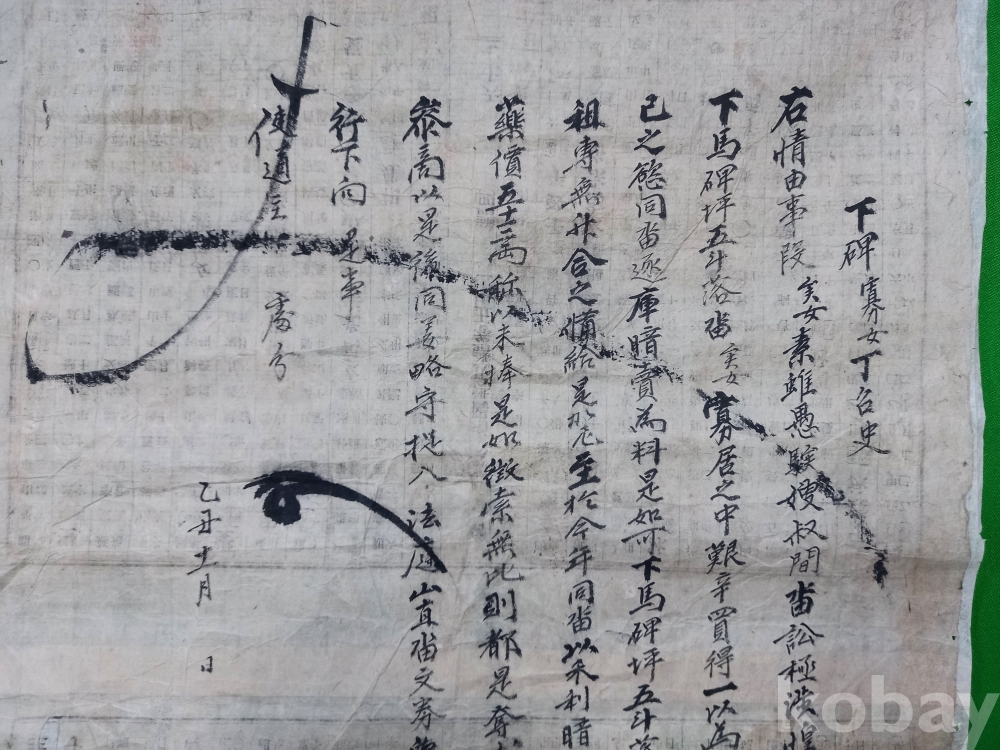 下碑寡女丁召史
右情由事段矣女素雖愚騃嫂叔間畓訟極涉惶
下馬碑坪五斗落畓矣女寡居之中艱辛買得一以爲
己之慾同畓逐庫暗賣爲料是如可下馬碑坪五斗落
租專無升合之備給是於尤至於今年同畓以禾利暗
藥價五十三兩称以未捧是如徵索無比則都是奪
參商以是後同 略守捉入法庭山直畓文券
行下向 是事
使道主 處分
乙丑十一月 日
kobay